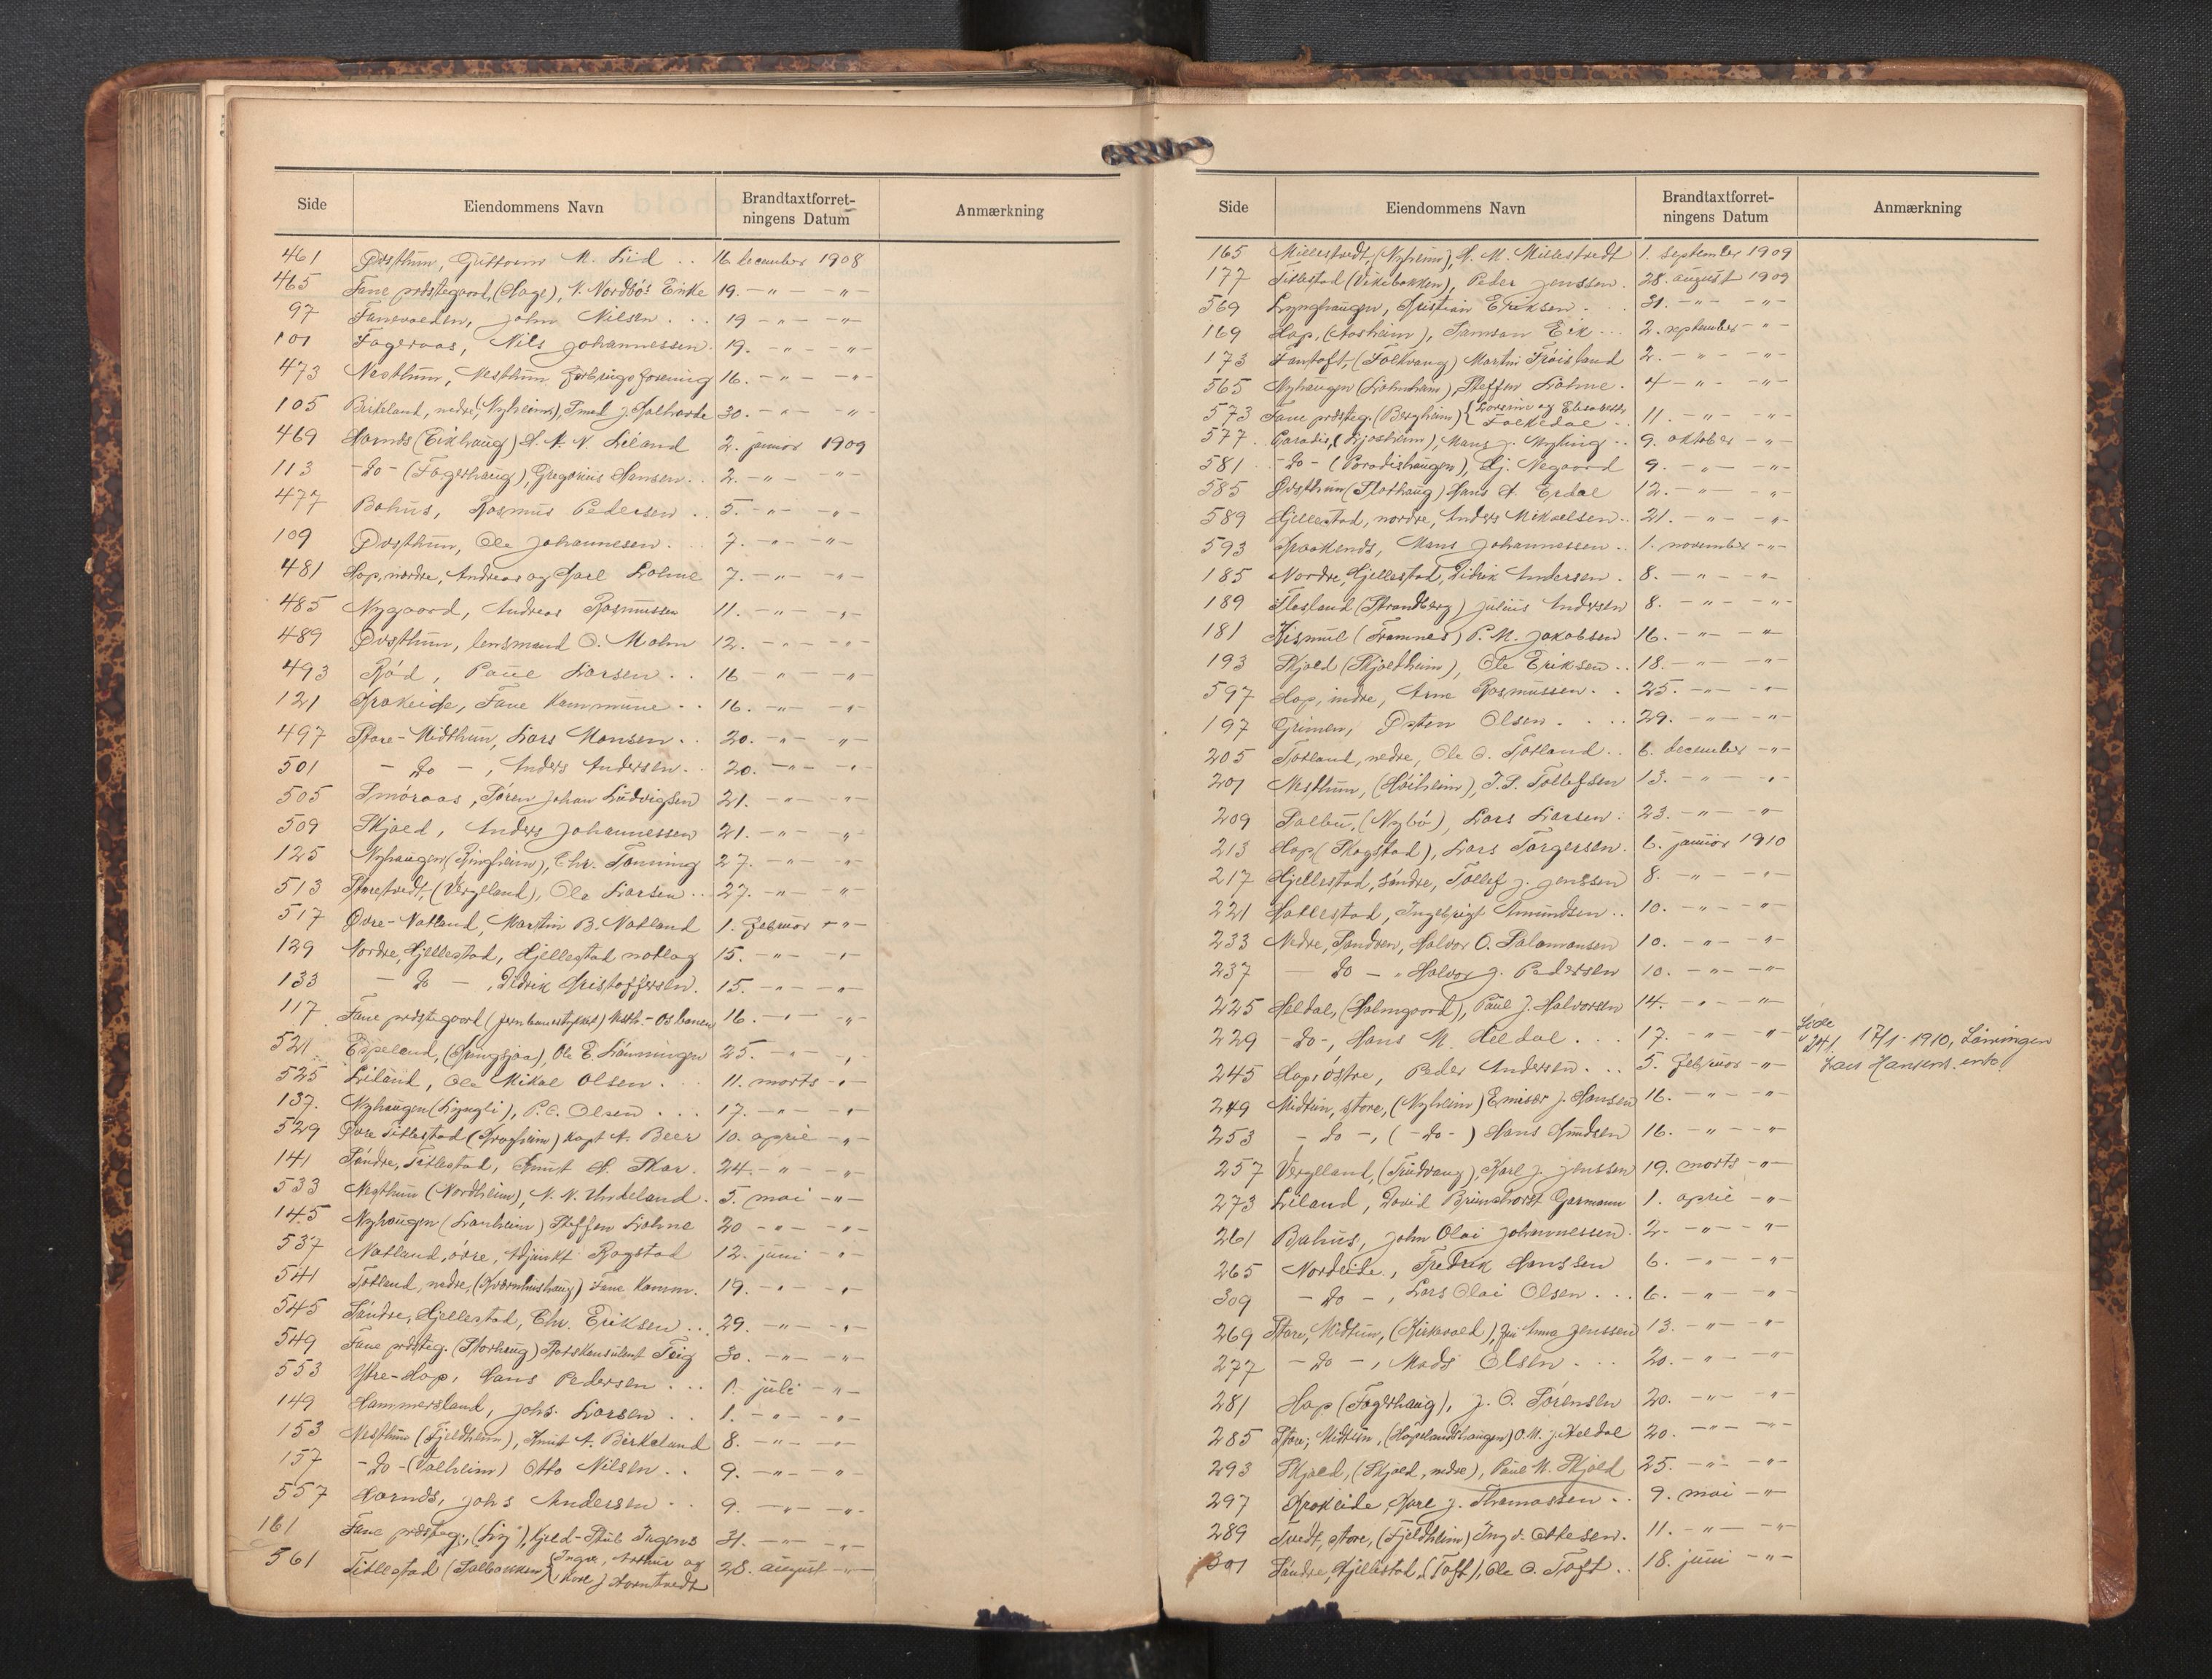 Side Eiendommens Navn Brandtaxtforret-ningens Datum Anmærkning
461 Øvsthun, Guttorm M. Lid .. 16. december 1908
465 Fane præstegaard, (Hage), N. Nordbø's Enke 19. -"- -"-
97 Fanevolden, John Nilsen . . . 19 -"- -"-
101 Fageraas, Nils Johannessen. 19. -"- -"-
473 Nesthun, Nesthun forbrugsforening 16. -"- -"-
105 Birkeland, nedre, (Nyheim), Smed J. Halhorde 30. -"- -"-
469 Hornæs (Eikhaug) A. N. Liland 2. januar 1909
113 -do- (Fagerhaug), Gregorius Hansen. . 2. -"- -"-
477 Bahus, Rasmus Pedersen . . 5. -"- -"-
109 Øvsthun, Ole Johannesen. . . 7. -"- -"-
481 Hop, nordre, Andreas og Karl Lohne 7. -"- -"-
485 Nygaard, Andreas Rasmussen 11. -"- -"-
489 Øvsthun, lensmand O. Malm 12. -"- -"-
493 Rød, Paul Larsen . . 16 -"- -"-
121 Krokeide, Fane Kommune . . 16. -"- -"-
497 Store-Midthun, Lars Monsen. . 20. -"- -"-
501 - do -, Anders Andersen. . 20. -"- -"-
505 Smøraas, Søren Johan Ludvigsen 21. -"- -"-
509 Skjold, Anders Johannessen 21. -"- -"-
125 Nyhaugen (Ringheim), Chr. Tonning 27. -"- -"-
513 Storetvedt, (Vergeland), Ole Larsen . . 27. -"- -"-
517 Øvre-Natland, Martin B. Natland 1. februar -"-
129 Nordre, Hjellestad, Hjellestad notlag 15. -"- -"-
133 - do -, Didrik Kristoffersen. 15. -"- -"-
117 Fane præstegaard (jernbanestykket) Nesth.-Osbanen 16. -"- -"-
521 Espeland, (Kringsjaa), Ole E. Lønningen 25. -"- -"-
525 Liland, Ole Mikal Olsen . . . 11. marts -"-
137. Nyhaugen (Lyngli), P. C. Olsen . . . 17. -"- -"-
529 Øvre Titlestad (Krogheim) Kapt. A. Beer 10. april -"-
141 Søndre, Titlestad, Knut H. Skar. 24. -"- -"-
533 Nesthun (Nordheim), N. N. Undeland. 5. mai -"-
145 Nyhaugen (Lonheim) Steffen Lohne 20 -"- -"-
537 Natland, øvre, Adjunkt Rogstad 12. juni -"-
541 Totland, nedre, (Kvernhushaug) Fane Komm. 19. -"- -"-
545 Søndre, Hjellestad, Chr. Eriksen . . 29. -"- -"-
549 Fane præsteg. (Storhaug) Statskonsulent Teig 30. -"- -"-
553 Ytre-Hop, Hans Pedersen . . . 1. juli -"-
149 Hammersland, Johs. Larsen . . 1. -"- -"-
153 Nesthun (Fjeldheim), Knut A. Birkeland 8. -"- -"-
157 -do- (Solheim) Otto Nilsen . . 9. -"- -"-
557 Hornæs, Johs Andersen . . 9. -"- -"-
161 Fane præsteg., (Li), Kjeld-Stub Irgens 31. -"- -"-
561 Titlestad (Solbakken) {Ingv., Arthur og 28. august -"-
Karl J Horntvedt
Side Eiendommens Navn Brandtaxtforret-ningens Datum Anmærkning
165 Millestvedt, (Nyheim), A. M. Millestvedt 1. september 1909
177 Titlestad (Vikebakken), Peder Jenssen . 28. august 1909
569 Lynghaugen, Kristian Eriksen . . . 31. -"- -"-
169 Hop, (Aasheim), Samson Eik . . . 2. september -"-
173 Fantoft, (Folkvang) Martin Frøisland 2. -"- -"-
565 Nyhaugen (Lohnheim), Steffen Lohne. 4 -"- -"-
573 Fane præsteg. (Bergheim) {Lovsine og Elisabeth Folkedal . . 11. -"- -"-
577. Paradis, (Ljosheim), Mons J. Myking . . 9. oktober -"-
581 -do- (Paradishaugen), Lj. Negaard 9. -"- -"-
585 Øvsthun (Slothaug) Hans A. Erdal 12. -"- -"-
589 Hjellestad, nordre, Anders Mikaelsen. . 21. -"- -"-
593 Kraakenæs, Mons Johannessen . . 1. november -"-
185 Nordre, Hjellestad, Didrik Andersen . 8. -"- -"-
189 Flesland (Strandberg) Julius Andersen 8. -"- -"-
181 Kismul (Framnes) P. M. Jakobsen 16. -"- -"-
193 Skjold (Skjoldheim), Ole Eriksen . . 18. -"- -"-
597 Hop, indre, Arne Rasmussen . . 25. -"- -"-
197 Grimen, Østen Olsen . . . . 29. -"- -"-
205 Totland, nedre, Ole O. Totland . . 6. december -"-
201 Nesthun, (Høiheim), J. S. Tollefsen 13. -"- -"-
209 Sælbu, (Nybø), Lars Larsen . 23. -"- -"-
213 Hop (Skogstad), Lars Torgersen . 6. januar 1910
217 Hjellestad, søndre, Tollef J. Jenssen 8. -"- -"-
221 Hatlestad, Ingebrigt Amundsen . . 10. -"- -"-
233 Nedre, Sandven, Halvor O. Salamonsen 10. -"- -"-
237 - do - " Halvor J. Pedersen 10. -"- -"-
225 Heldal, (Holmgaard), Paul J. Halvorsen 14. -"- -"-
229 -do-, Hans M. Heldal . . . 17. -"- -"- Side 241. 17/1-1910, Lønningen
245 Hop, østre, Peder Andersen . . . 5. februar -"- Lars Hansens enke
249 Midtun, store, (Nyheim) Emisær J. Hansen 16. -"- -"-
253 - do -, (-do-) Hans Knudsen 16. -"- -"-
257 Vergeland, (Trudvang), Karl J. Jenssen 19. marts -"-
273 Liland, David Brunchorst Garmann 1. april -"-
261 Bahus, John Olai Johannessen. 2. -"- -"-
265 Nordeide, Fredrik Hanssen 6. -"- -"-
309 - do -, Lars Olai Olsen . . . 6. -"- -"-
269 Store, Midtun, (Kirkevold), fru Anna Jenssen 13. -"- -"-
277 - do -, Mads Olsen . . . 20. -"- -"-
281 Hop (Fagerhaug), J. O. Sørensen 20. -"- -"-
285 Store, Midtun, (Hopelandshaugen) O. M. J. Heldal 20. -"- -"-
293 Skjold, (Skjold, nedre), Paul N. Skjold 25. -"- -"-
297 Krokeide, Karl J. Thomassen . . 9. mai -"-
289 Tvedt, store, (Fjeldheim) Ingv. Ottesen. 11. -"- -"-
301 Søndre, Hjellestad, (Toft), Ole O. Toft . . 18. juni -"-